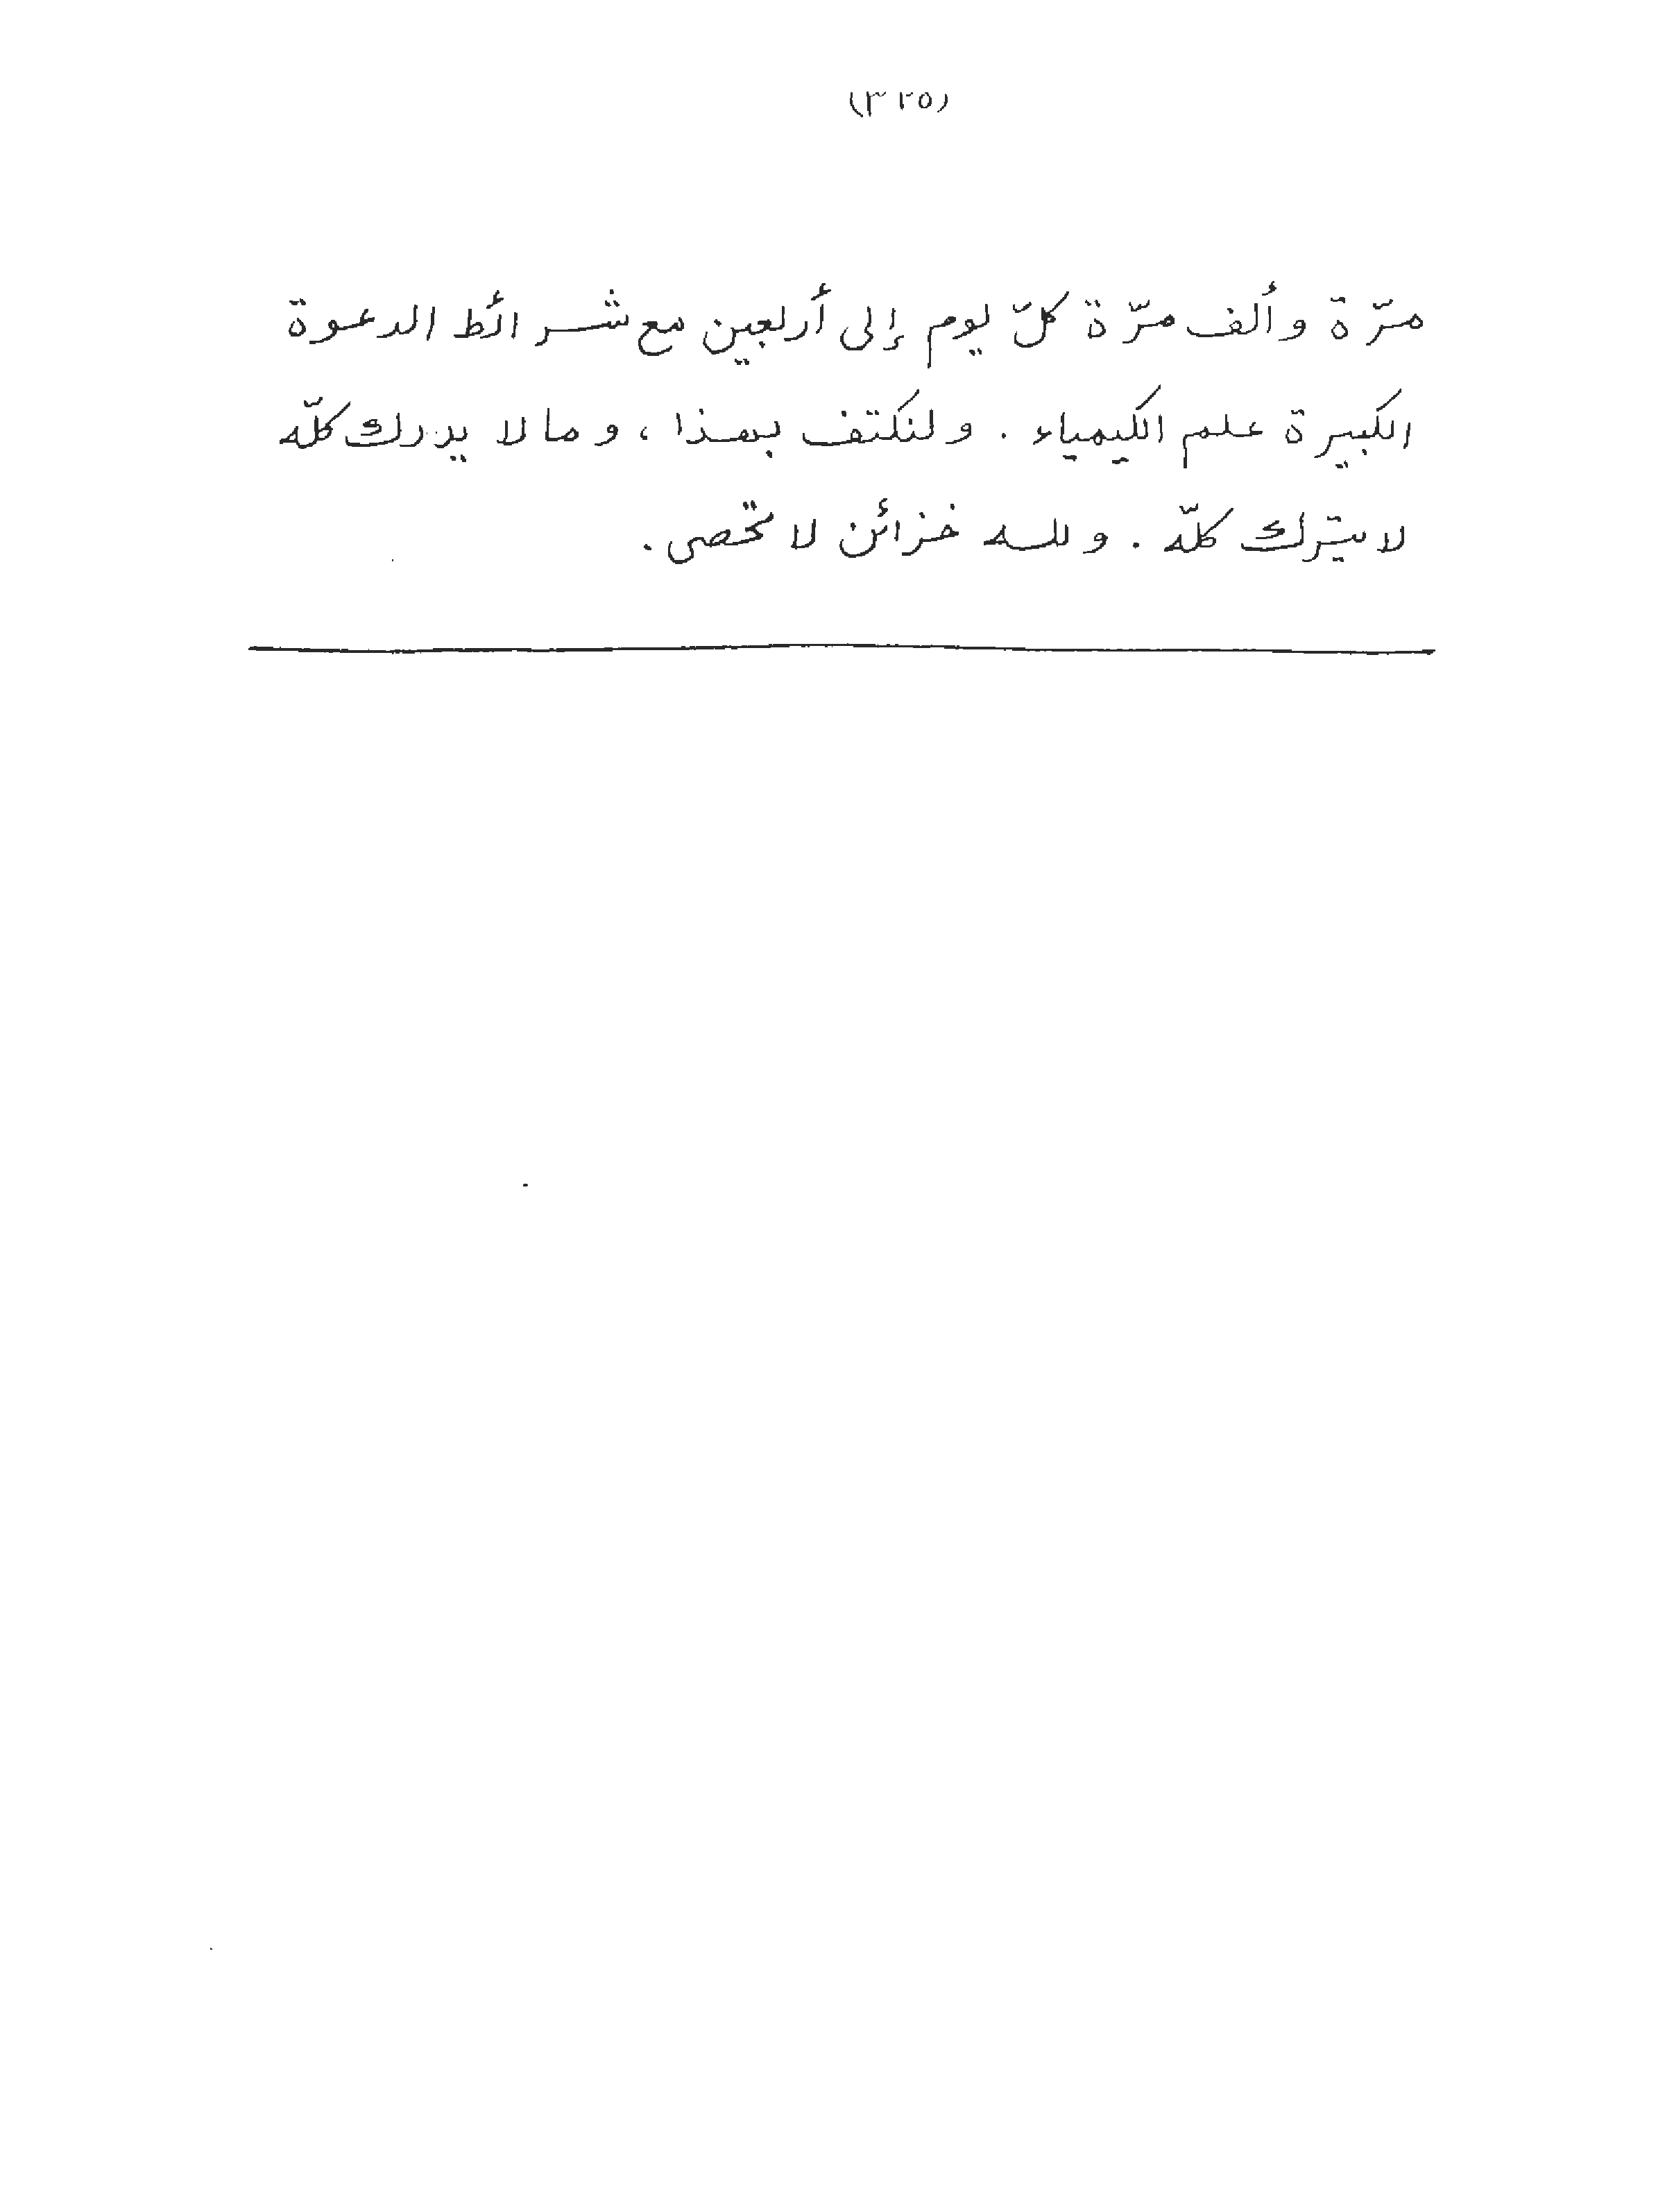 (٣٢٥)
مرّة وألف مرّة كلّ يوم إلى أربعين مع شرائط الدعوة
الكبيرة علم الكيمياء . ولنكتف بهذا ، وما لا يدرك كلّه
لا يترك كلّه . ولله خزائن لا تحصى .